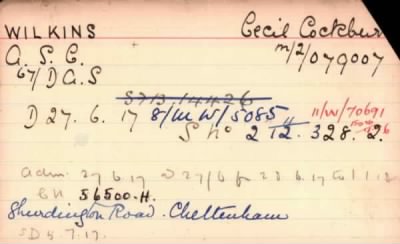 WILKINS Cecil Cockburn
A.S.C. M/2/079007
67/D A.S
S713.14426
D 27. 6. 17 8/MW/5085 11/W/70691
S No 2 12. 328. 2.
Adm. 27 6.17
56500.H.
Shurdington Road. Cheltenham
SD 5.7.17.